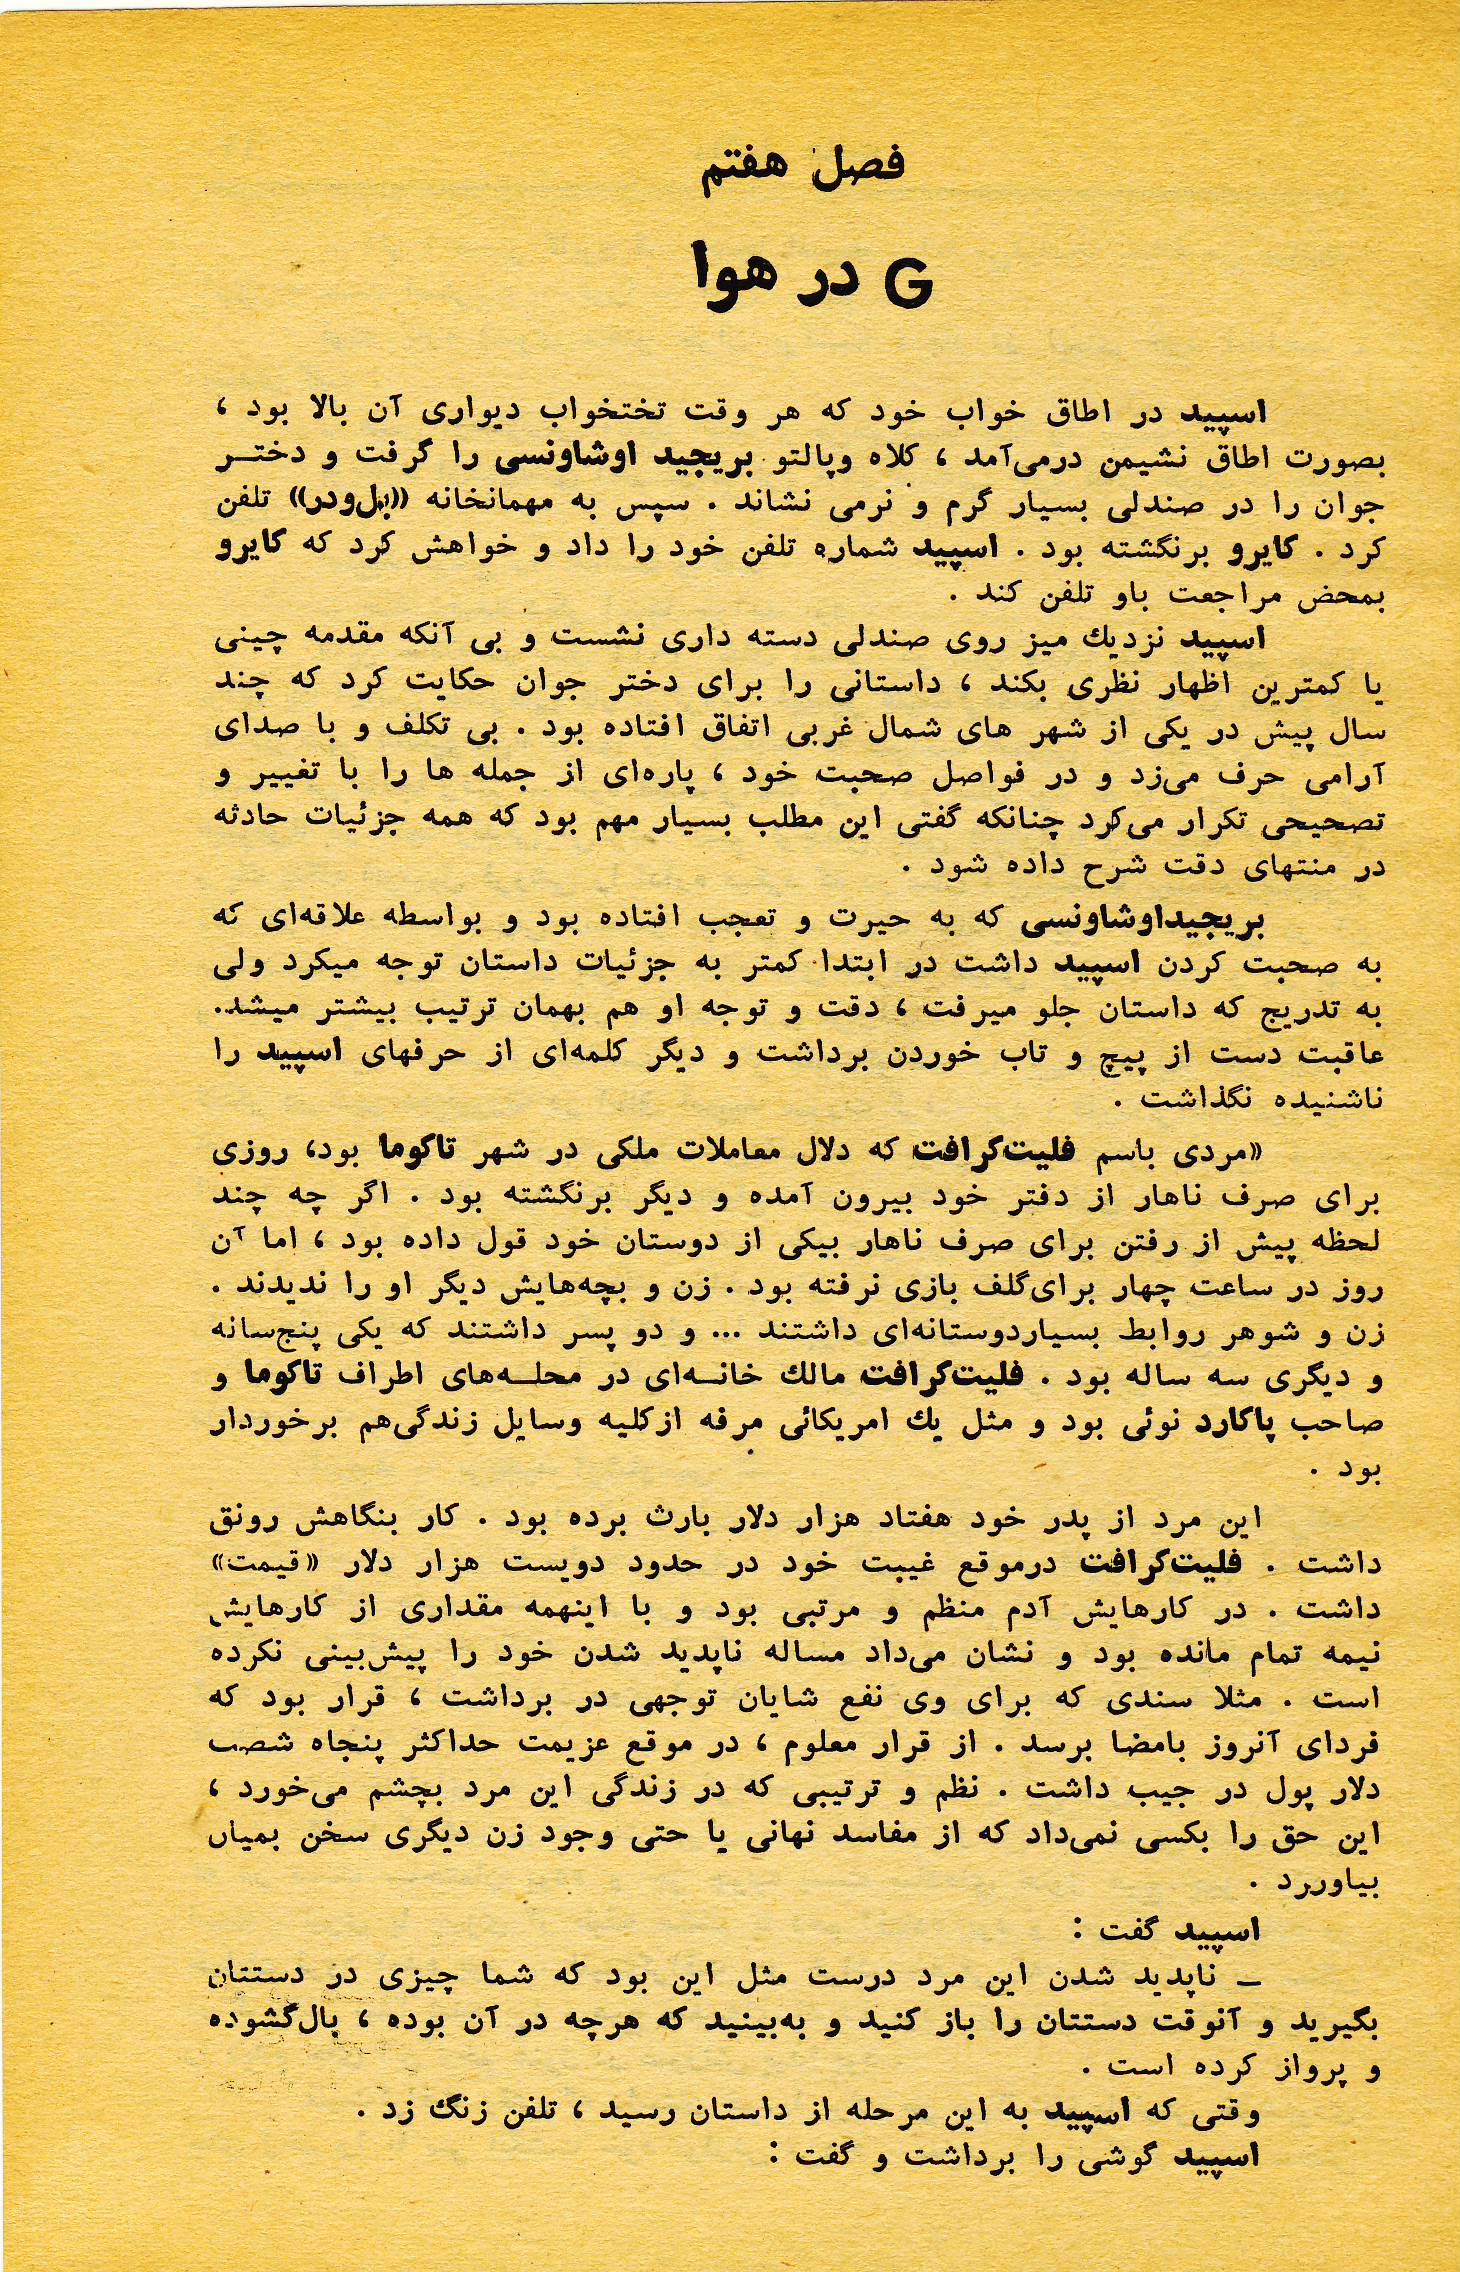 فصل هفتم
G در هوا
اسپید در اطاق خواب خود که هر وقت تختخواب دیواری آن بالا بود ،
بصورت اطاق نشیمن درمی‌آمد ، کلاه وپالتو بریجید اوشاونسی را گرفت و دختـر
جوان را در صندلی بسیار گرم و نرمی نشاند . سپس به مهمانخانه «بل‌ودر» تلفن
کرد . کایرو برنگشته بود . اسپید شماره تلفن خود را داد و خواهش کرد که کایرو
بمحض مراجعت باو تلفن کند .
اسپید نزدیك میز روی صندلی دسته داری نشست و بی آنکه مقدمه چینی
یا کمترین اظهار نظری بکند ، داستانی را برای دختر جوان حکایت کرد که چند
سال پیش در یکی از شهر های شمال غربی اتفاق افتاده بود . بی تکلف و با صدای
آرامی حرف می‌زد و در فواصل صحبت خود ، پاره‌ای از جمله ها را با تغییر و
تصحیحی تکرار می‌کرد چنانکه گفتی این مطلب بسیار مهم بود که همه جزئیات حادثه
در منتهای دقت شرح داده شود .
بریجیداوشاونسی که به حیرت و تعجب افتاده بود و بواسطه علاقه‌ای که
به صحبت کردن اسپید داشت در ابتدا کمتر به جزئیات داستان توجه میکرد ولی
به تدریج که داستان جلو میرفت ، دقت و توجه او هم بهمان ترتیب بیشتر میشد.
عاقبت دست از پیچ و تاب خوردن برداشت و دیگر کلمه‌ای از حرفهای اسپید را
ناشنیده نگذاشت .
«مردی باسم فلیت‌کرافت که دلال معاملات ملکی در شهر تاکوما بود، روزی
برای صرف ناهار از دفتر خود بیرون آمده و دیگر برنگشته بود . اگر چه چند
لحظه پیش از رفتن برای صرف ناهار بیکی از دوستان خود قول داده بود ، اما آن
روز در ساعت چهار برای‌گلف بازی نرفته بود . زن و بچه‌هایش دیگر او را ندیدند .
زن و شوهر روابط بسیاردوستانه‌ای داشتند ... و دو پسر داشتند که یکی پنج‌سانه
و دیگری سه ساله بود . فلیت‌کرافت مالك خانـه‌ای در محلـه‌های اطراف تاکوما و
صاحب پاکارد نوئی بود و مثل یك امریکائی مرفه ازکلیه وسایل زندگی‌هم برخوردار
بود .
این مرد از پدر خود هفتاد هزار دلار بارث برده بود . کار بنگاهش رونق
داشت . فلیت‌کرافت درموقع غیبت خود در حدود دویست هزار دلار «قیمت»
داشت . در کارهایش آدم منظم و مرتبی بود و با اینهمه مقداری از کارهایش
نیمه تمام مانده بود و نشان می‌داد مساله ناپدید شدن خود را پیش‌بینی نکرده
است . مثلا سندی که برای وی نفع شایان توجهی در برداشت ، قرار بود که
فردای آنروز بامضا برسد . از قرار معلوم ، در موقع عزیمت حداکثر پنجاه شصت
دلار پول در جیب داشت . نظم و ترتیبی که در زندگی این مرد بچشم می‌خورد ،
این حق را بکسی نمی‌داد که از مفاسد نهانی یا حتی وجود زن دیگری سخن بمیان
بیاوررد .
اسپید گفت :
ـ ناپدید شدن این مرد درست مثل این بود که شما چیزی در دستتان
بگیرید و آنوقت دستتان را باز کنید و به‌بینید که هرچه در آن بوده ، بال‌گشوده
و پرواز کرده است .
وقتی که اسپید به این مرحله از داستان رسید ، تلفن زنگ زد .
اسپید گوشی را برداشت و گفت :